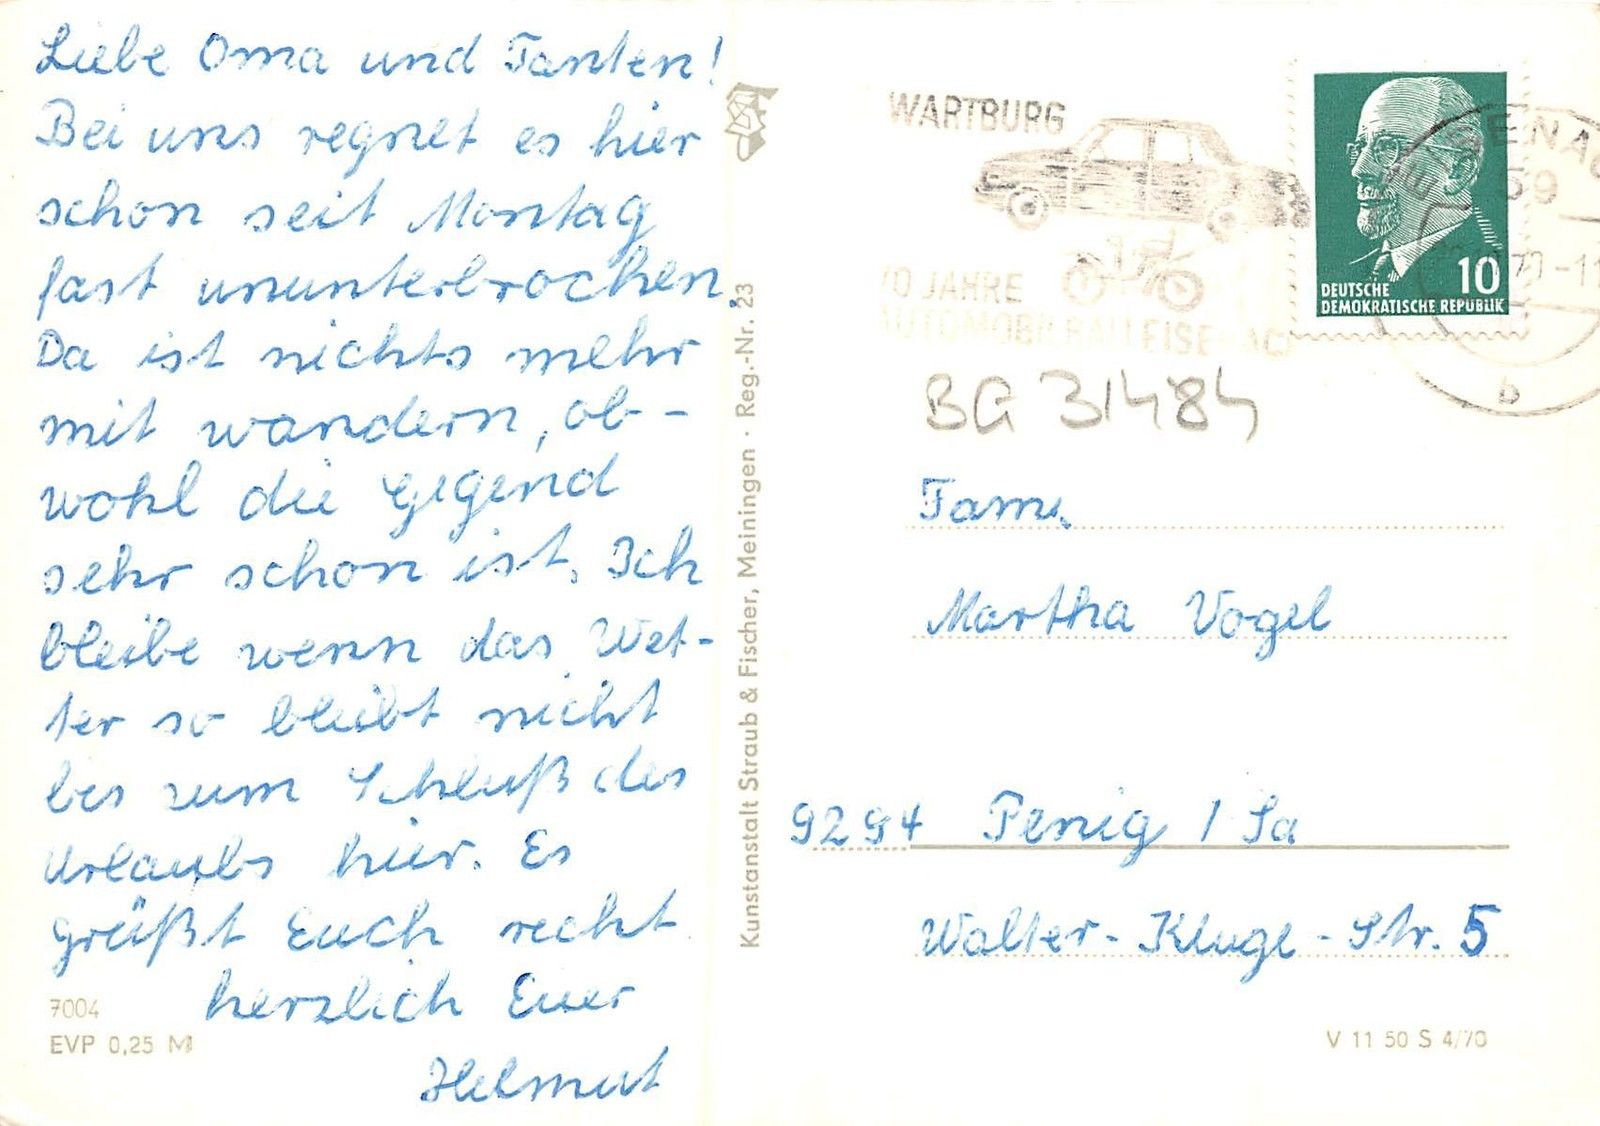 Liebe Oma und Tanten!
Bei uns regnet es hier
schon seit Montag
fast ununterbrochen.
Da ist nichts mehr
mit wandern, ob-
wohl die Gegend
sehr schon ist. Ich
bleibe wenn das Wet-
ter so bleibt nicht
bis zum Schluß des
Urlaubs hier. Es
grüßt Euch recht
herzlich Euer
Helmut
7004
EVP 0,25 M
Kunstanstalt Straub & Fischer, Meiningen · Reg.-Nr. 23
WARTBURG
70 JAHRE
AUTOMOBILBAU EISENACH
EISENACH
59
70-11
b
10
DEUTSCHE
DEMOKRATISCHE REPUBLIK
BG 31484
Fam.
Martha Vogel
9294 Penig / Sa
Walter-Kluge-Str. 5
V 11 50 S 4/70